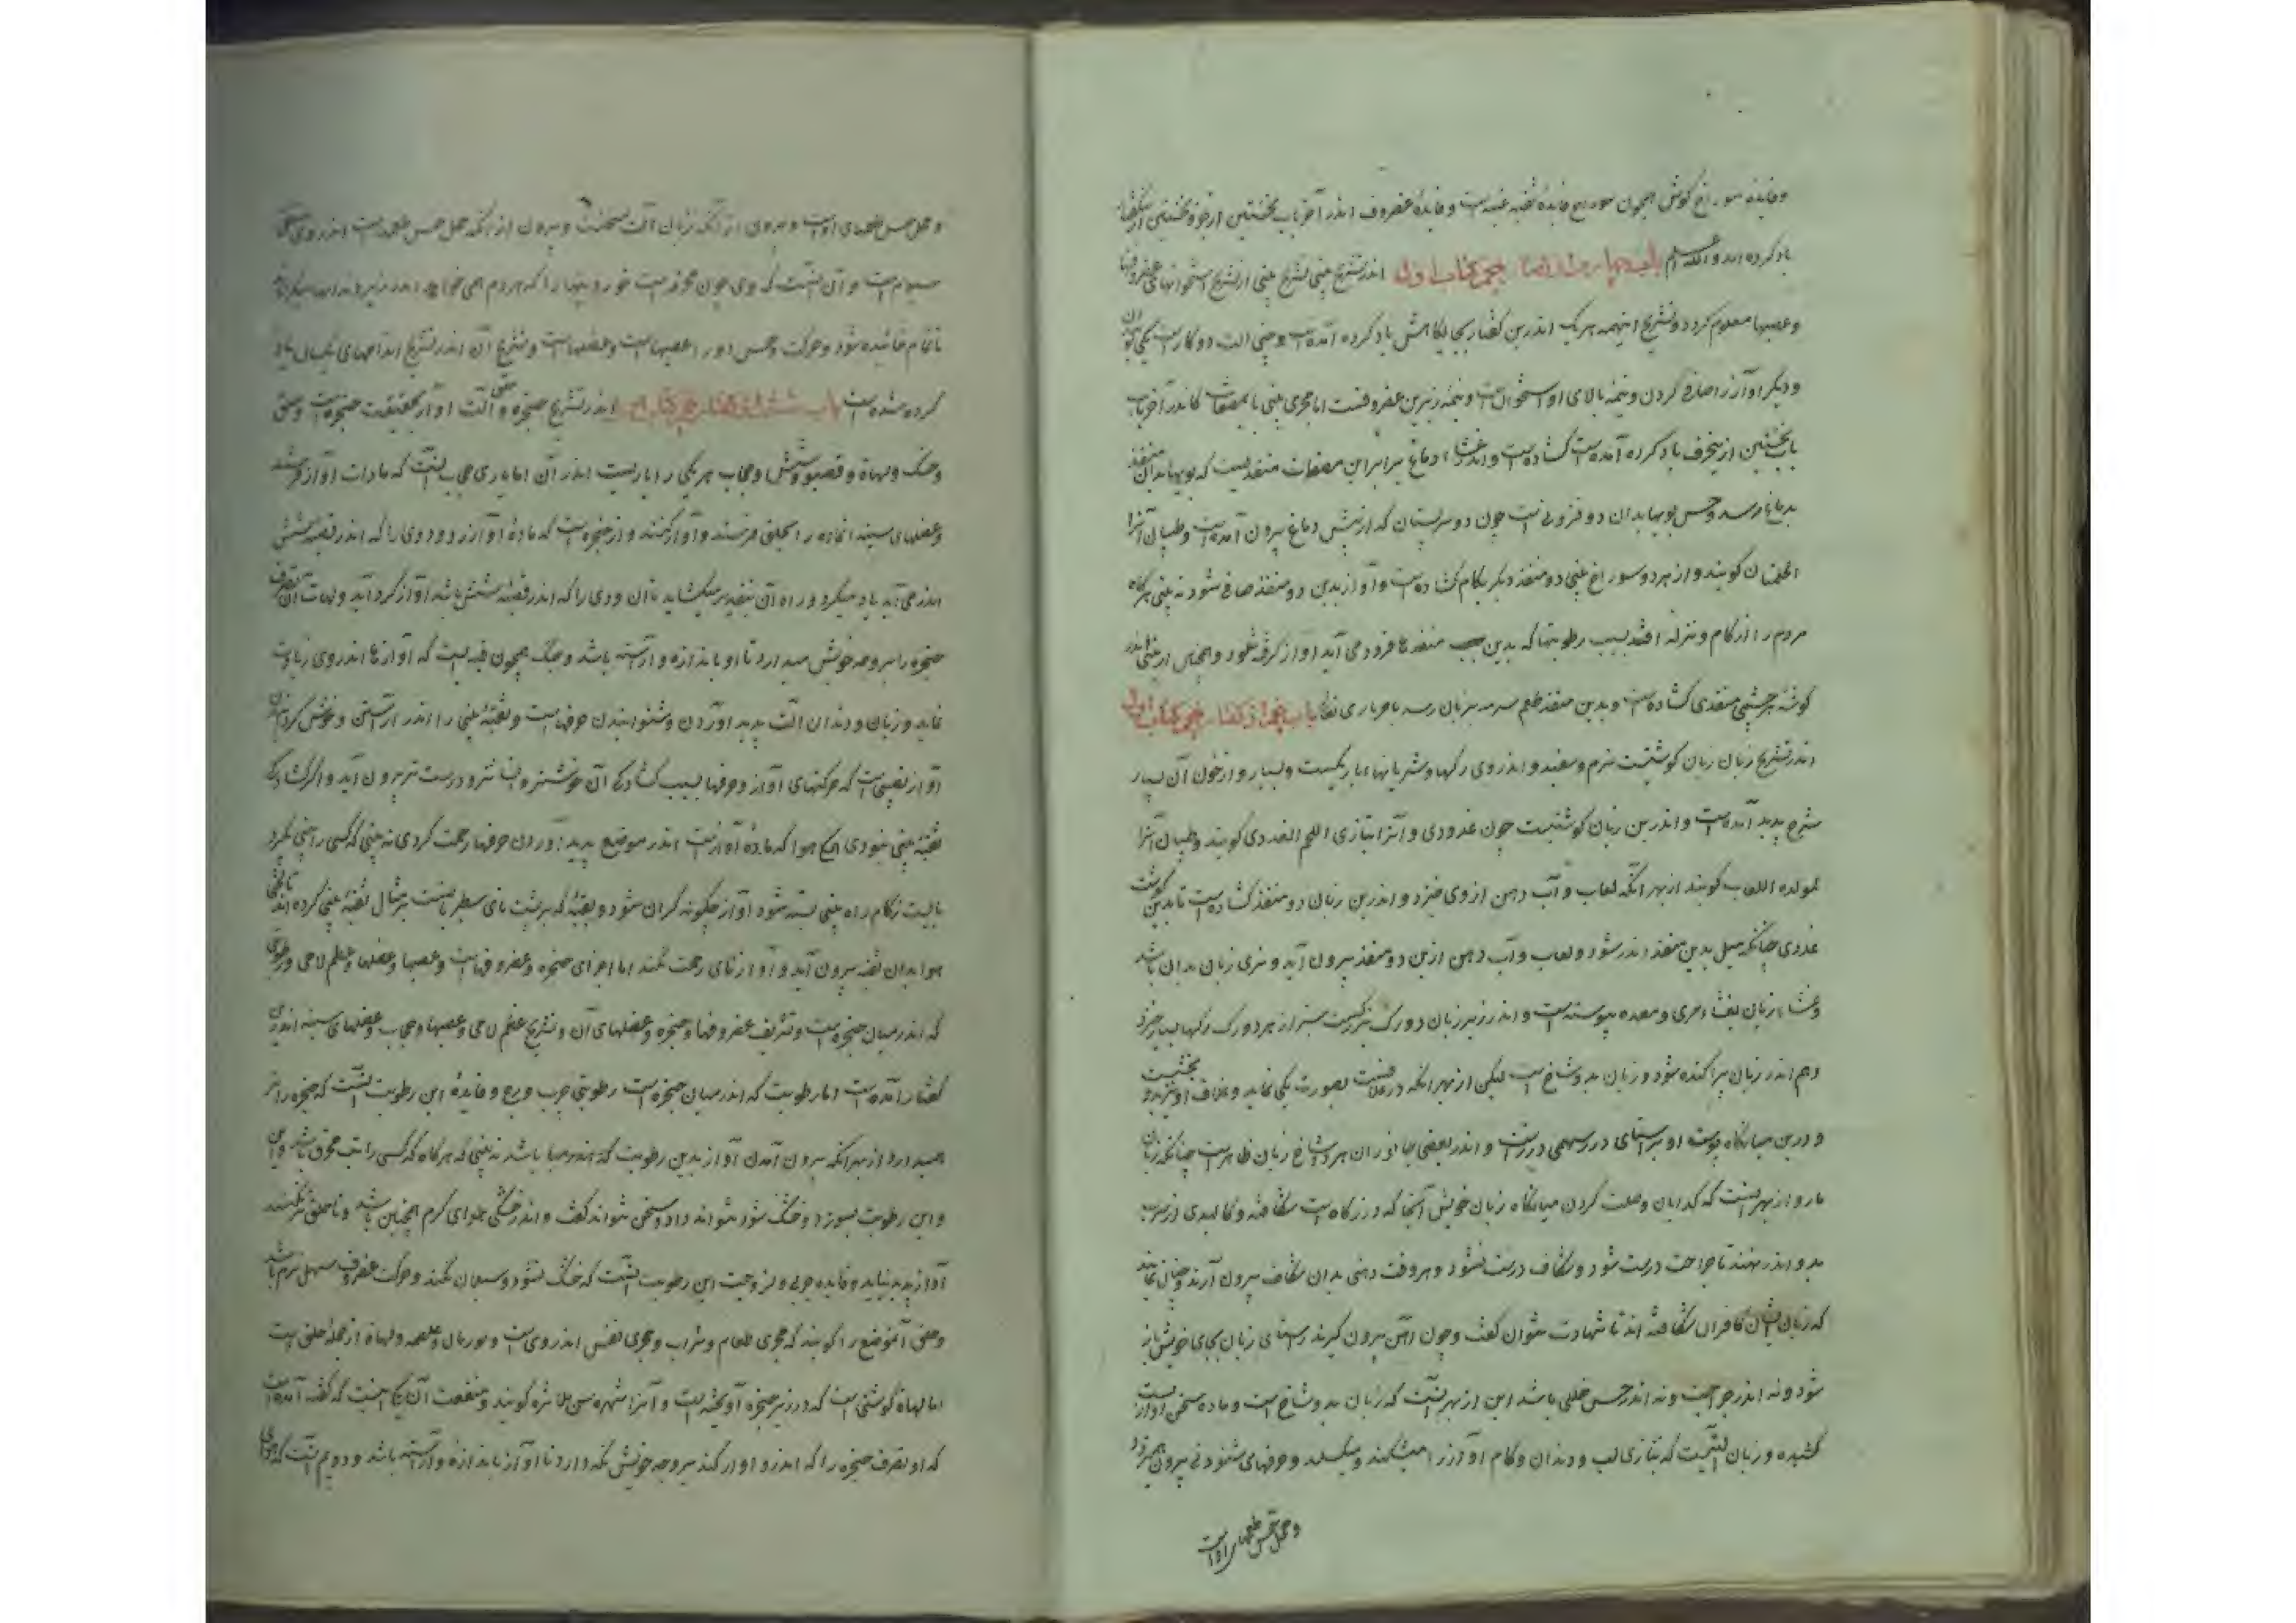 و فایده سوراخ گوش همچون سوراخ فایده ثقبه عنبیه است و فایده غضروف اندر آخر باب نخستین از جزو نخستین از گفتار
یاد کرده اند و الله اعلم باب چهارم از گفتار پنجم کتاب اول اندر تشریح بینی تشریح بینی از تشریح استخوانها و غضروفها
و عصبها معلوم گردد و تشریح اینهمه هر یک اندرین گفتار بجایگاهش یاد کرده آمده است و بینی آلت دو کار است یکی
و دیگر آواز را صافی کردن و نیمه بالای او استخوان است و نیمه زیرین غضروفست اما مجری بینی تا مصفات که اندر آخر باب
باب نخستین ازینحرف یاد کرده آمده است گشاده است و اندر غشاء دماغ برابر این مصفات منفذیست که بویها بدان منفذ
بدماغ رسد و حس بویها بدان دو فزونی است چون دو سر پستان که از پیش دماغ بیرون آمده است و طبیبان آنرا
الحلمتان گویند و از هر دو سوراخ بینی دو منفذ دیگر بکام گشاده است و آواز بدین دو منفذ صافی شود نه بینی هرگاه
مردم را زکام و نزله افتد بسبب رطوبتها که بدین منفذها فرود می آید آواز گرفته شود و همچنین از بینی اندر
گوشه هر چشمی منفذی گشاده است و بدین منفذ طعم سرمه بزبان رسد باب پنجم از گفتار پنجم کتاب اول
اندر تشریح زبان زبان گوشتیست نرم و سفید و اندر وی رگها و شریانهاء باریکست و بسیار و از خون آن بسیار
سرخ پدید آمده است و اندر بن زبان گوشتیست چون غدودی و آنرا بتازی اللحم الغددی گویند و طبیبان آنرا
مولده اللعاب گویند از بهر آنکه لعاب و آب دهن از وی خیزد و اندر بن زبان دو منفذ گشاده است تا بدین گوشت
غددی چنانکه میل بدین منفذ اندر شود و لعاب و آب دهن ازین دو منفذ بیرون آید و تری زبان بدان باشد
و غشاء زبان بغشاء مری و معده پیوسته است و اندر زیر زبان دو رگ بزرگست سبز از هر دو رگ رگها بسیار خیزد
و هم اندر زبان پراکنده شود و زبان بدو شاخ است لیکن از بهر آنکه در غلافست بصورت یکی نماید و غلاف او
و درین میانگاه پوست او براستای درز سهمی درزیست و اندر بعضی جانوران هر دو شاخ زبان ظاهر است چنانکه زبان
مار و از بهر اینست که گدایان میانگاه زبان خویش آنجا که درزگاه است شکافته و کالبدی
بدو اندر نهند تا جراحت درست شود و شکاف درست نشود و هر وقت دهنی بدان شکاف بیرون آرند و چنان نمایند
که زبان ایشان کافران شکافته اند تا شهادت نتوان گفت و چون آهن بیرون گیرند زبان بجای خویش باز
شود و نه اندر جراحت و نه اندر حس خللی باشد این از بهر اینست که زبان بدو شاخ است و ماده سخن آواز است
کشیده و زبان است که بیاری لب و دندان و کام آواز را میشکند و میگسلد و حرفهای شنودنی بیرون می آرد
و محل حس طعمها اوست
و محل حس طعمهای اوست و بیرون از آنکه زبان آلت سخنست و بیرون از آنکه محل حس طعم است اندر وی منفعتی
و آن اینست که وی چون مجرفه ایست خوردنیها را که مردم همی خواید اندر زیر دندان میگرداند
تا تمام خائیده شود و حرکت و حس دو را عصبهاست و عضلهاست و تشریح آن اندر تشریح اندامهای یکسان یاد
کرده شده است باب ششم از گفتار پنجم کتاب اول اندر تشریح حنجره و حلق آلت آواز بحقیقت حنجره است و حلق
و حنک و لهاة و قصبه و شش و حجاب هر یکی را یاریست اندر آن اما یاری حجاب اینست که مادت آواز فرستد
و عضلهای سینه آن ماده را بحلق فرستند و آواز کنند و از حنجره است که ماده آواز زود و دودی را که اندر قصبه شش
اندر می آید باد میگیرد و راه آن نفس میگشاید تا آن دودی را که اندر قصبه شش باشد آواز گرداند و لهاة تصرف
حنجره را بر وجه خویش میدارد تا او باندازه و آراسته باشد و حنک همچون قبه ایست که آوازها اندر وی زیادت
نماید و زبان و دندان آلت پدید آوردن و شنوانیدن حرفهاست و ثقبه بینی را اندر آراستن و خوش کردن
آواز نصیبی است که حرکتهای آواز و حرفها بسبب گشادگی آن خوشتر و درست تر بیرون آید و اگر گشادگی
ثقبه بینی نبودی همه هوا که ماده آوازست اندر موضع پدید آوردن حرفها زحمت کردی نه بینی که کسی را بینی بگیرد
یا بسبب زکام راه بینی بسته شود آواز چگونه گران شود و ثقبه که بر پشت نای سطبر باشد بر مثال ثقبه بینی کرده اند تا
هوا بدان ثقبه بیرون آید و آواز نای زحمت نکند اما اجزای حنجره غضروفهاست و عصبها و عضلها و عظم لامی و رطوبتی
که اندر میان حنجره است و تشریف غضروفها و حنجره و عضلهای آن و تشریح عظم لامی و عصبها و حجاب و عضلهای سینه اندرین
گفتار آمده است اما رطوبت که اندر میان حنجره است رطوبتی چرب و لزج و فایده این رطوبت اینست که حنجره را تر
میدارد از بهر آنکه بیرون آمدن آواز بدین رطوبت باشد نه بینی که هرگاه که کسی را تب محرق باشد
و این رطوبت بسوزد و خشک شود آواز نتواند داد و سخن نتواند گفت و اندر خشکی هوای گرم همچنین باشد و تا حلق تر نکنند
آواز پدید نیاید و فایده چربی و لزوجت این رطوبت اینست که خشک نشود و سیلان نکند و حرکت غضروف سهل و نرم باشد
و حلق آن موضع را گویند که مجری طعام و شراب و مجری نفس اندر وی است و لوزتان و غلصمه و لهاة از جمله حلق است
اما لهاة گوشتی است که در زبر حنجره آویخته است و آنرا بشهر من ملازه گویند و منفعت آن یکی اینست که گفته آمده است
که او تصرف حنجره را که اندرو آواز کند بر وجه خویش نگه دارد تا آواز باندازه و آراسته باشد و دویم اینست که هوای